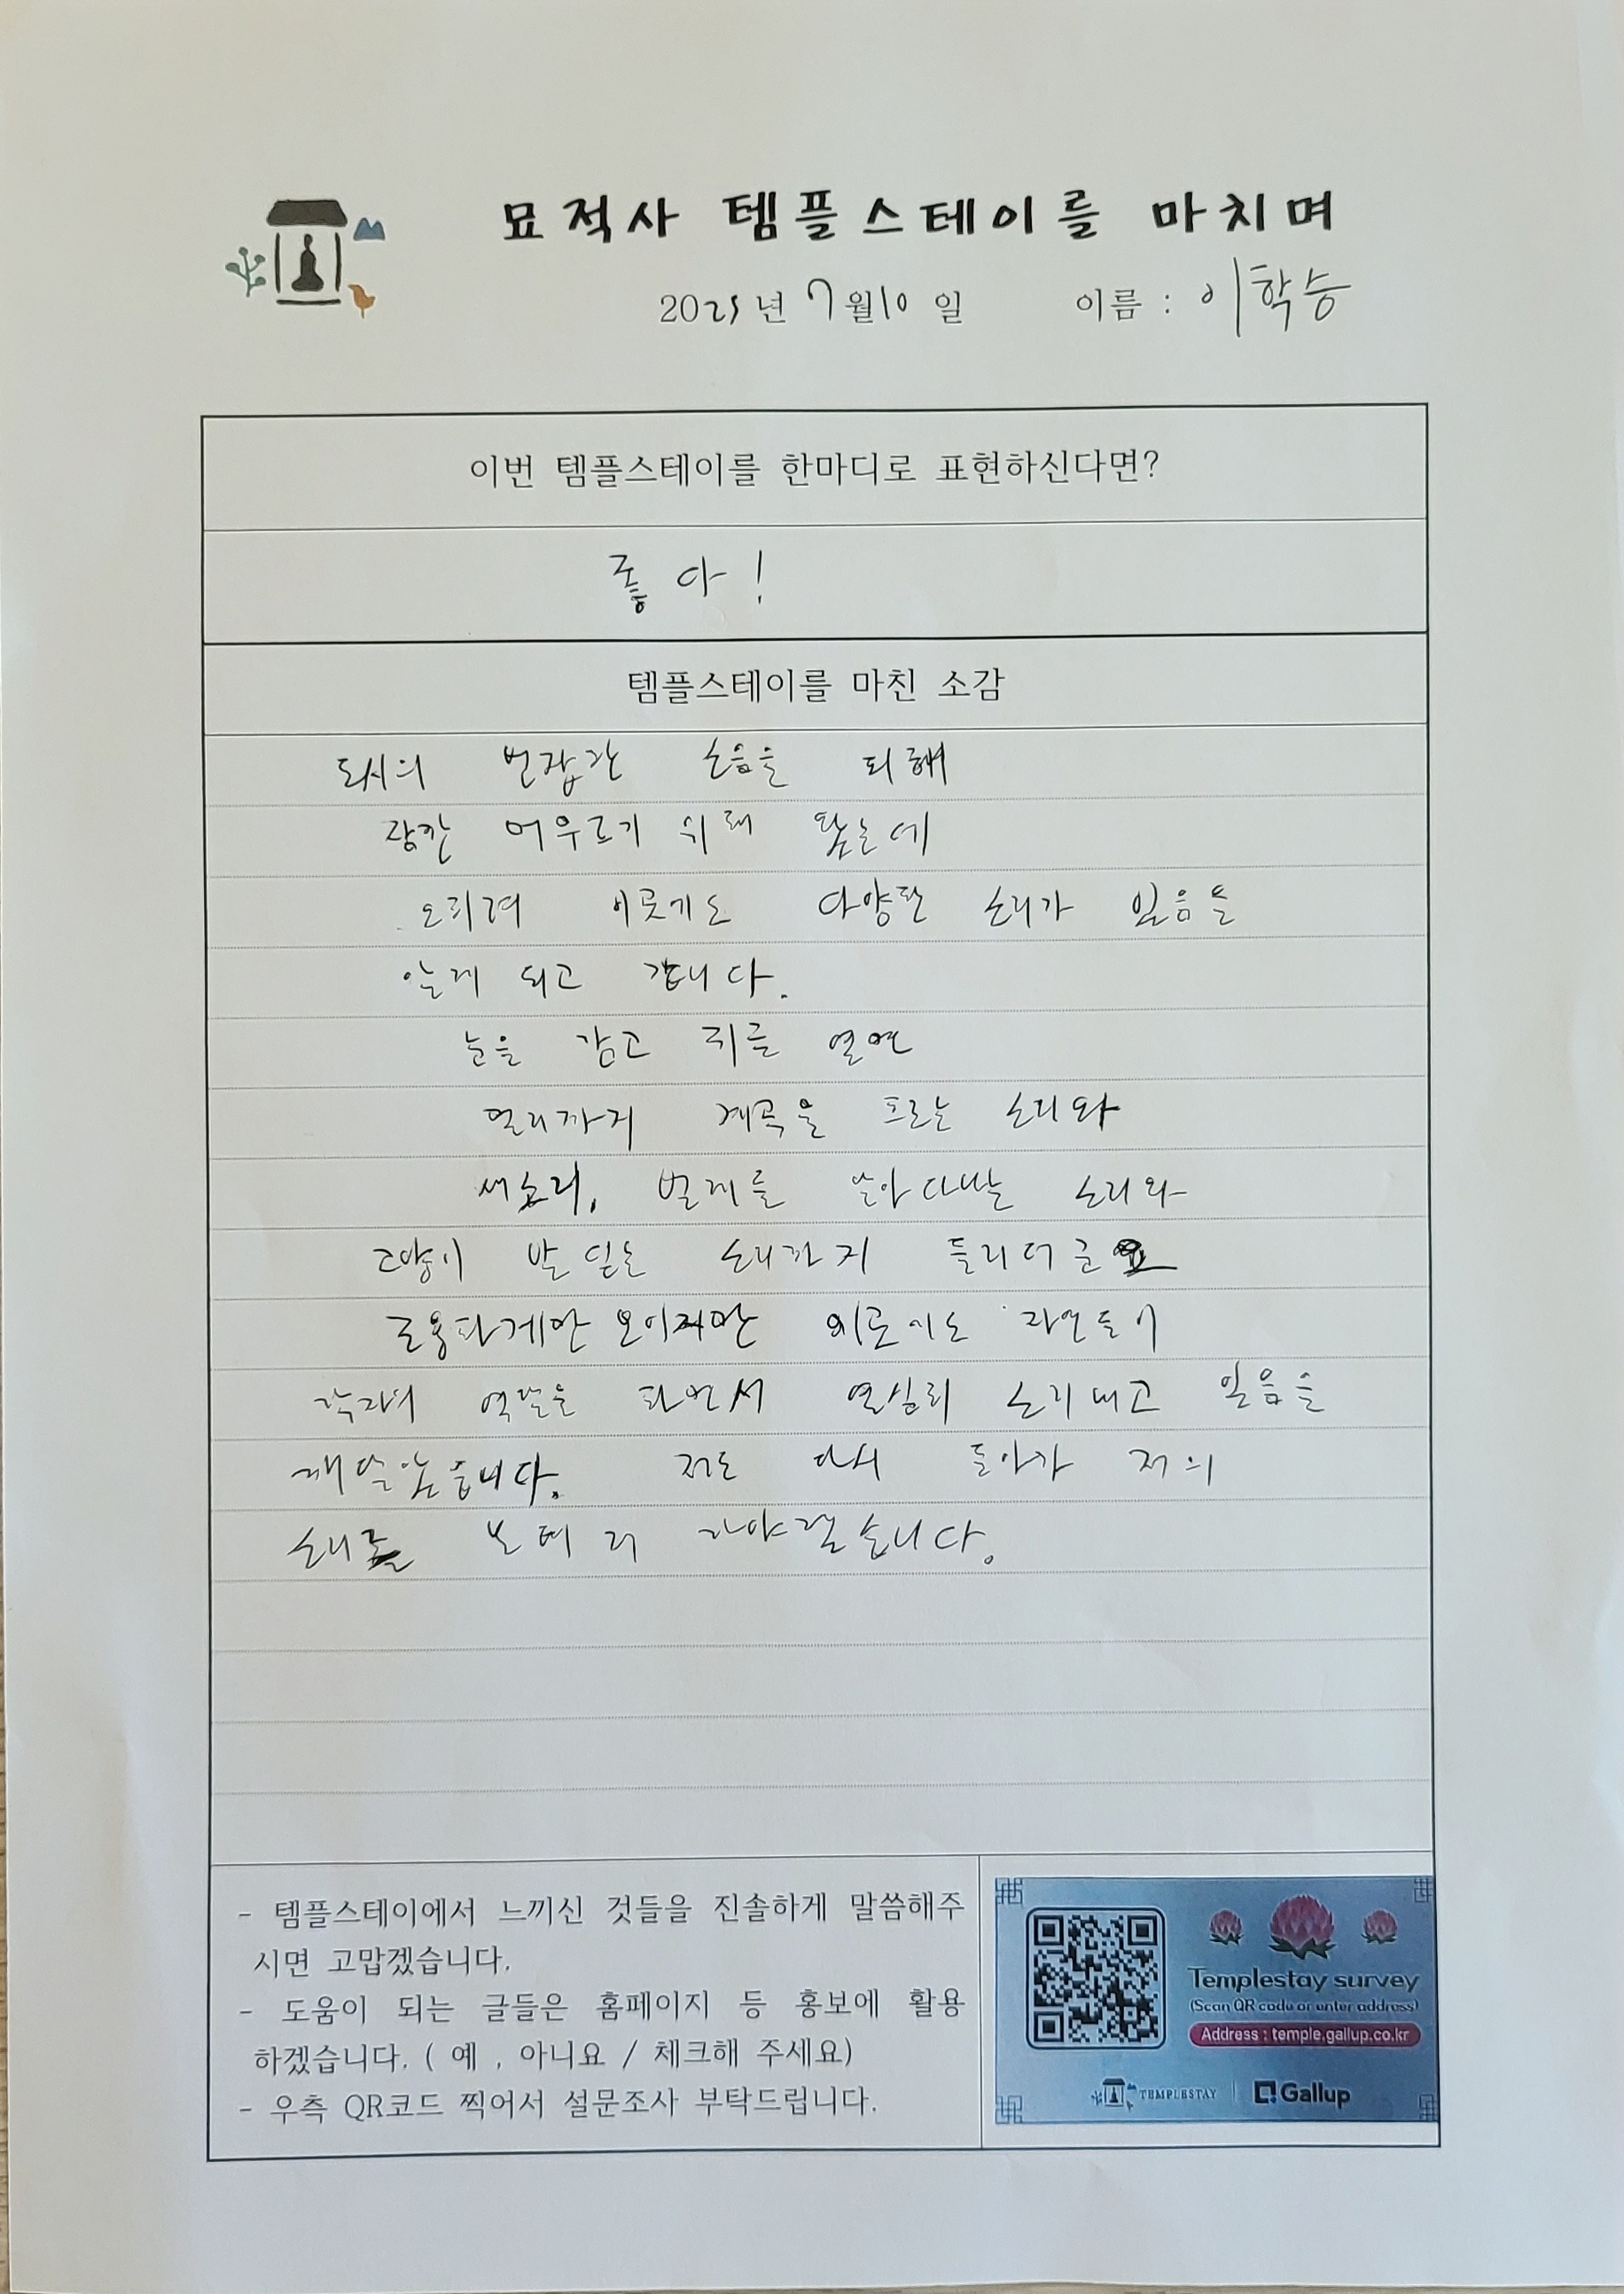 묘적사 템플스테이를 마치며
2025년 7월 10일 이름 : 이학승
이번 템플스테이를 한마디로 표현하신다면?
좋다!
템플스테이를 마친 소감
도시의 번잡한 소음을 피해
잠깐 머무르기 위해 왔는데
오히려 이곳에도 다양한 소리가 있음을
알게 되고 갑니다.
눈을 감고 귀를 열면
멀리까지 계곡을 흐르는 소리와
새소리, 벌레를 날아다니는 소리와
고양이 발 딛는 소리까지 들리더군요
조용하게만 보이지만 의외에도 자연들이
각자의 역할을 하면서 열심히 소리내고 있음을
깨달았습니다. 저도 다시 돌아가 저의
소리를 보태러 가야겠습니다.
- 템플스테이에서 느끼신 것들을 진솔하게 말씀해주
시면 고맙겠습니다.
- 도움이 되는 글들은 홈페이지 등 홍보에 활용
하겠습니다. ( 예 , 아니요 / 체크해 주세요)
- 우측 QR코드 찍어서 설문조사 부탁드립니다.
Templestay survey
(Scan QR code or enter address)
Address : temple.gallup.co.kr
TEMPLESTAY Gallup